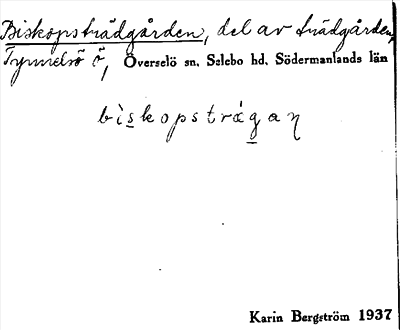 Biskopsträdgården, del av trädgården,
Tynnelsö ö, Överselö sn, Selebo hd, Södermanlands län
bìskopstrágan
Karin Bergström 1937